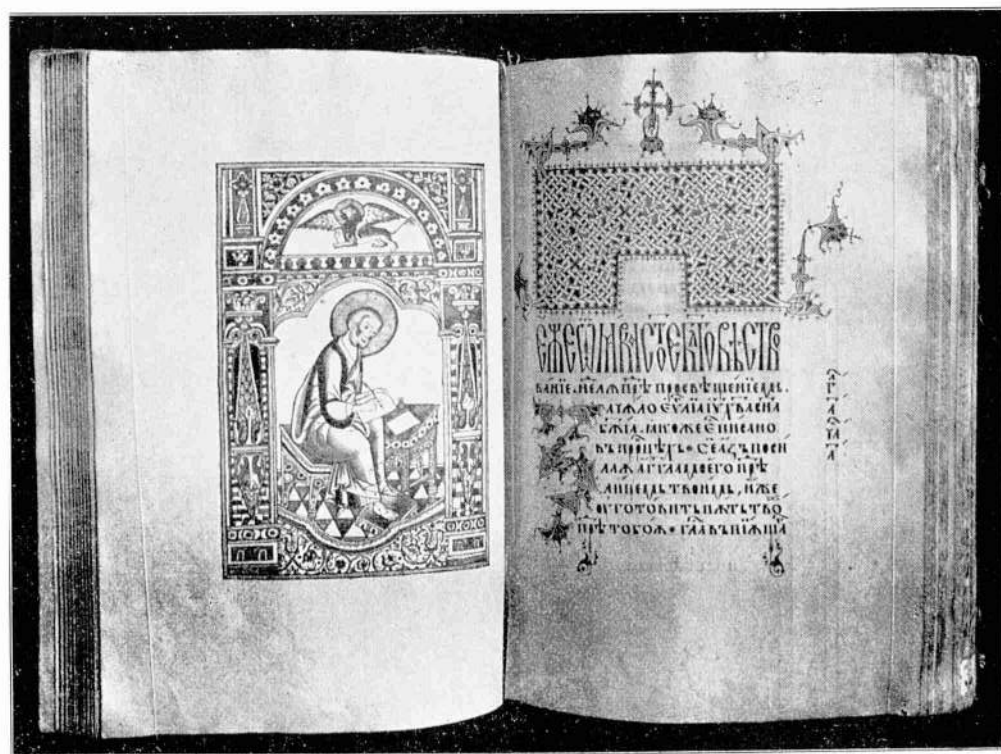 Еже ѿ мар҇ка ст҃ое бл҃говѣство
ванїе. нелѧ прѣ просвѣщенїемь.
Зачѧло єѵ҃лїа іѵ҃ хв҃а сн҃а
бж҃їа. ꙗкоже є҃ писано
въ прор҃цѣⷯ. Се азъ поси
лаѫ аг҃гла моего прѣⷣ
лицемь твоимь, иже
оуготовить пѫть тво
прѣⷣ тобоѫ. гла въпїѫща